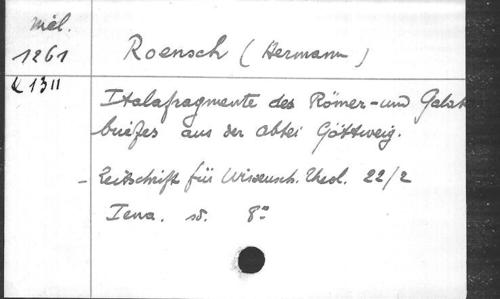 Mél.
1261
Roensch (Hermann)
C 1311
Italafragmente des Römer- und Galat
briefes aus der Abtei Göttweig.
- Zeitschrift für Wissensch. Theol. 22/2
Iena. sd. 8°